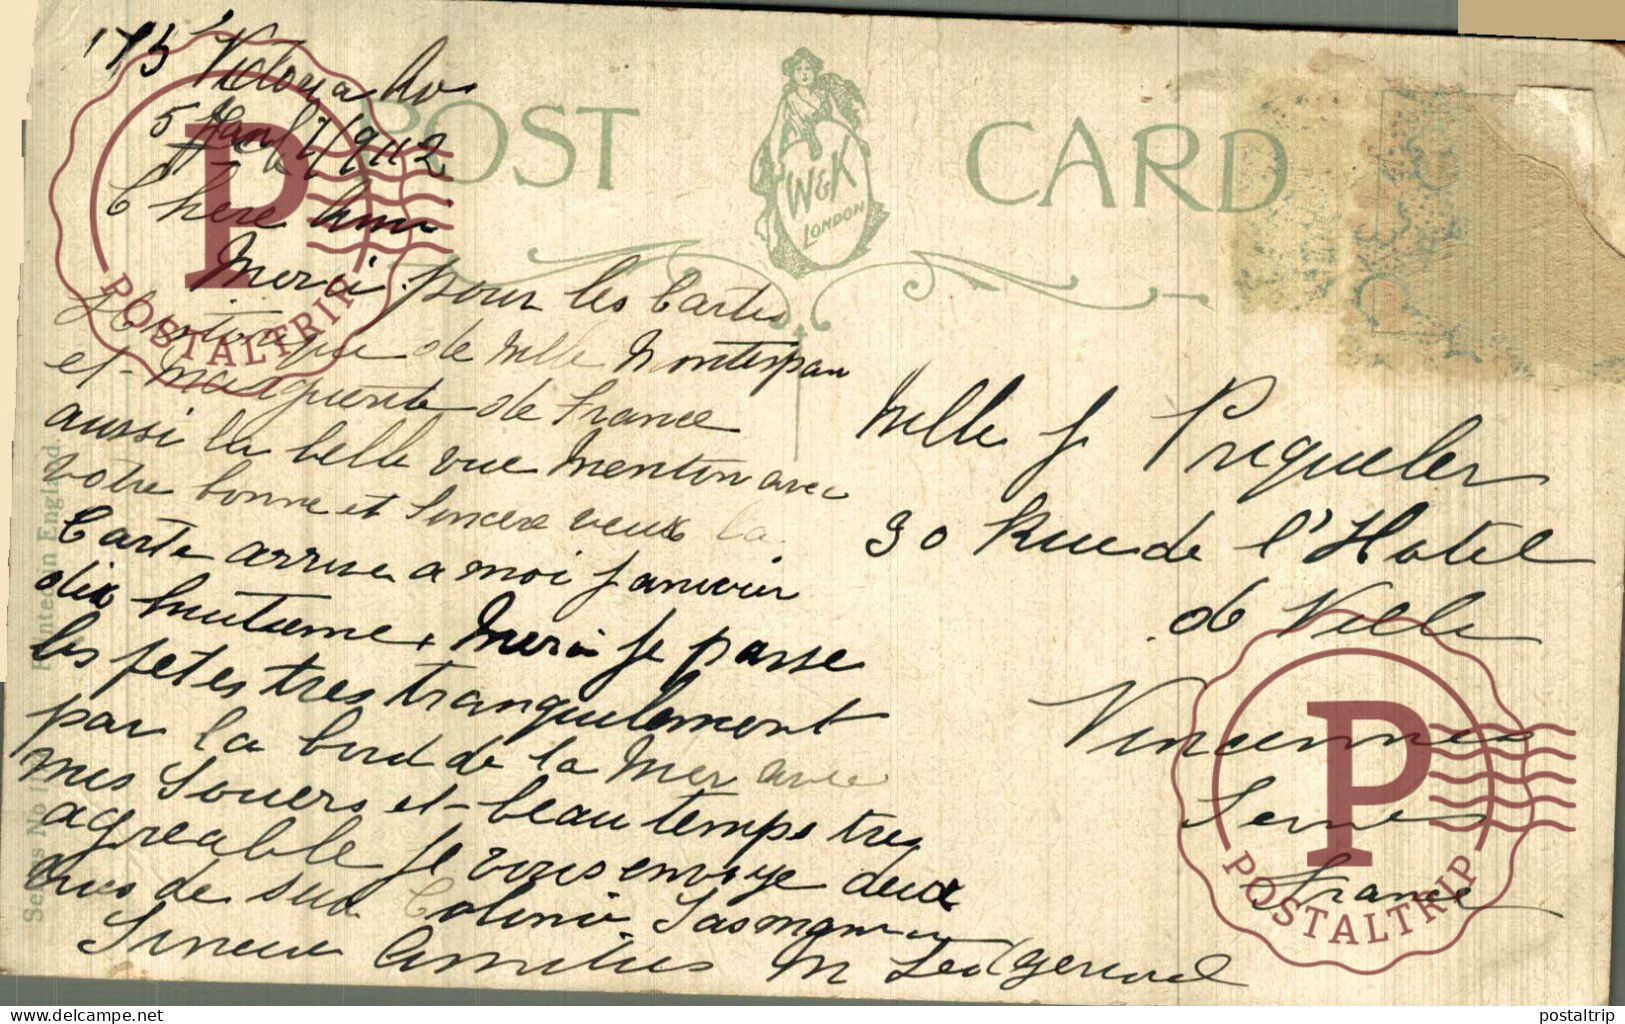 173 Victoria Av
5 1912
POST CARD
W&K
LONDON
Chere Ami
Merci pour les Cartes
Historique de Mlle Montespan
et Marguerite de France
aussi la belle vue Menton avec
votre bonne et Sincere veux la
Carte arrive a moi Janvier
dix huitieme. Merci je passe
les fetes tres tranquilement
par la bord de la Mer avec
mes Souers et beau temps tres
agreable je vous envoye deux
vues de sud Colonie. Tasmania
Sincere Amities M
Mlle J Priqueler
30 Rue de l'Hotel
de Ville
Vincennes
Seines
France
Printed in England
Series No
POSTALTRIP
POSTALTRIP
delcampe.net
postaltrip